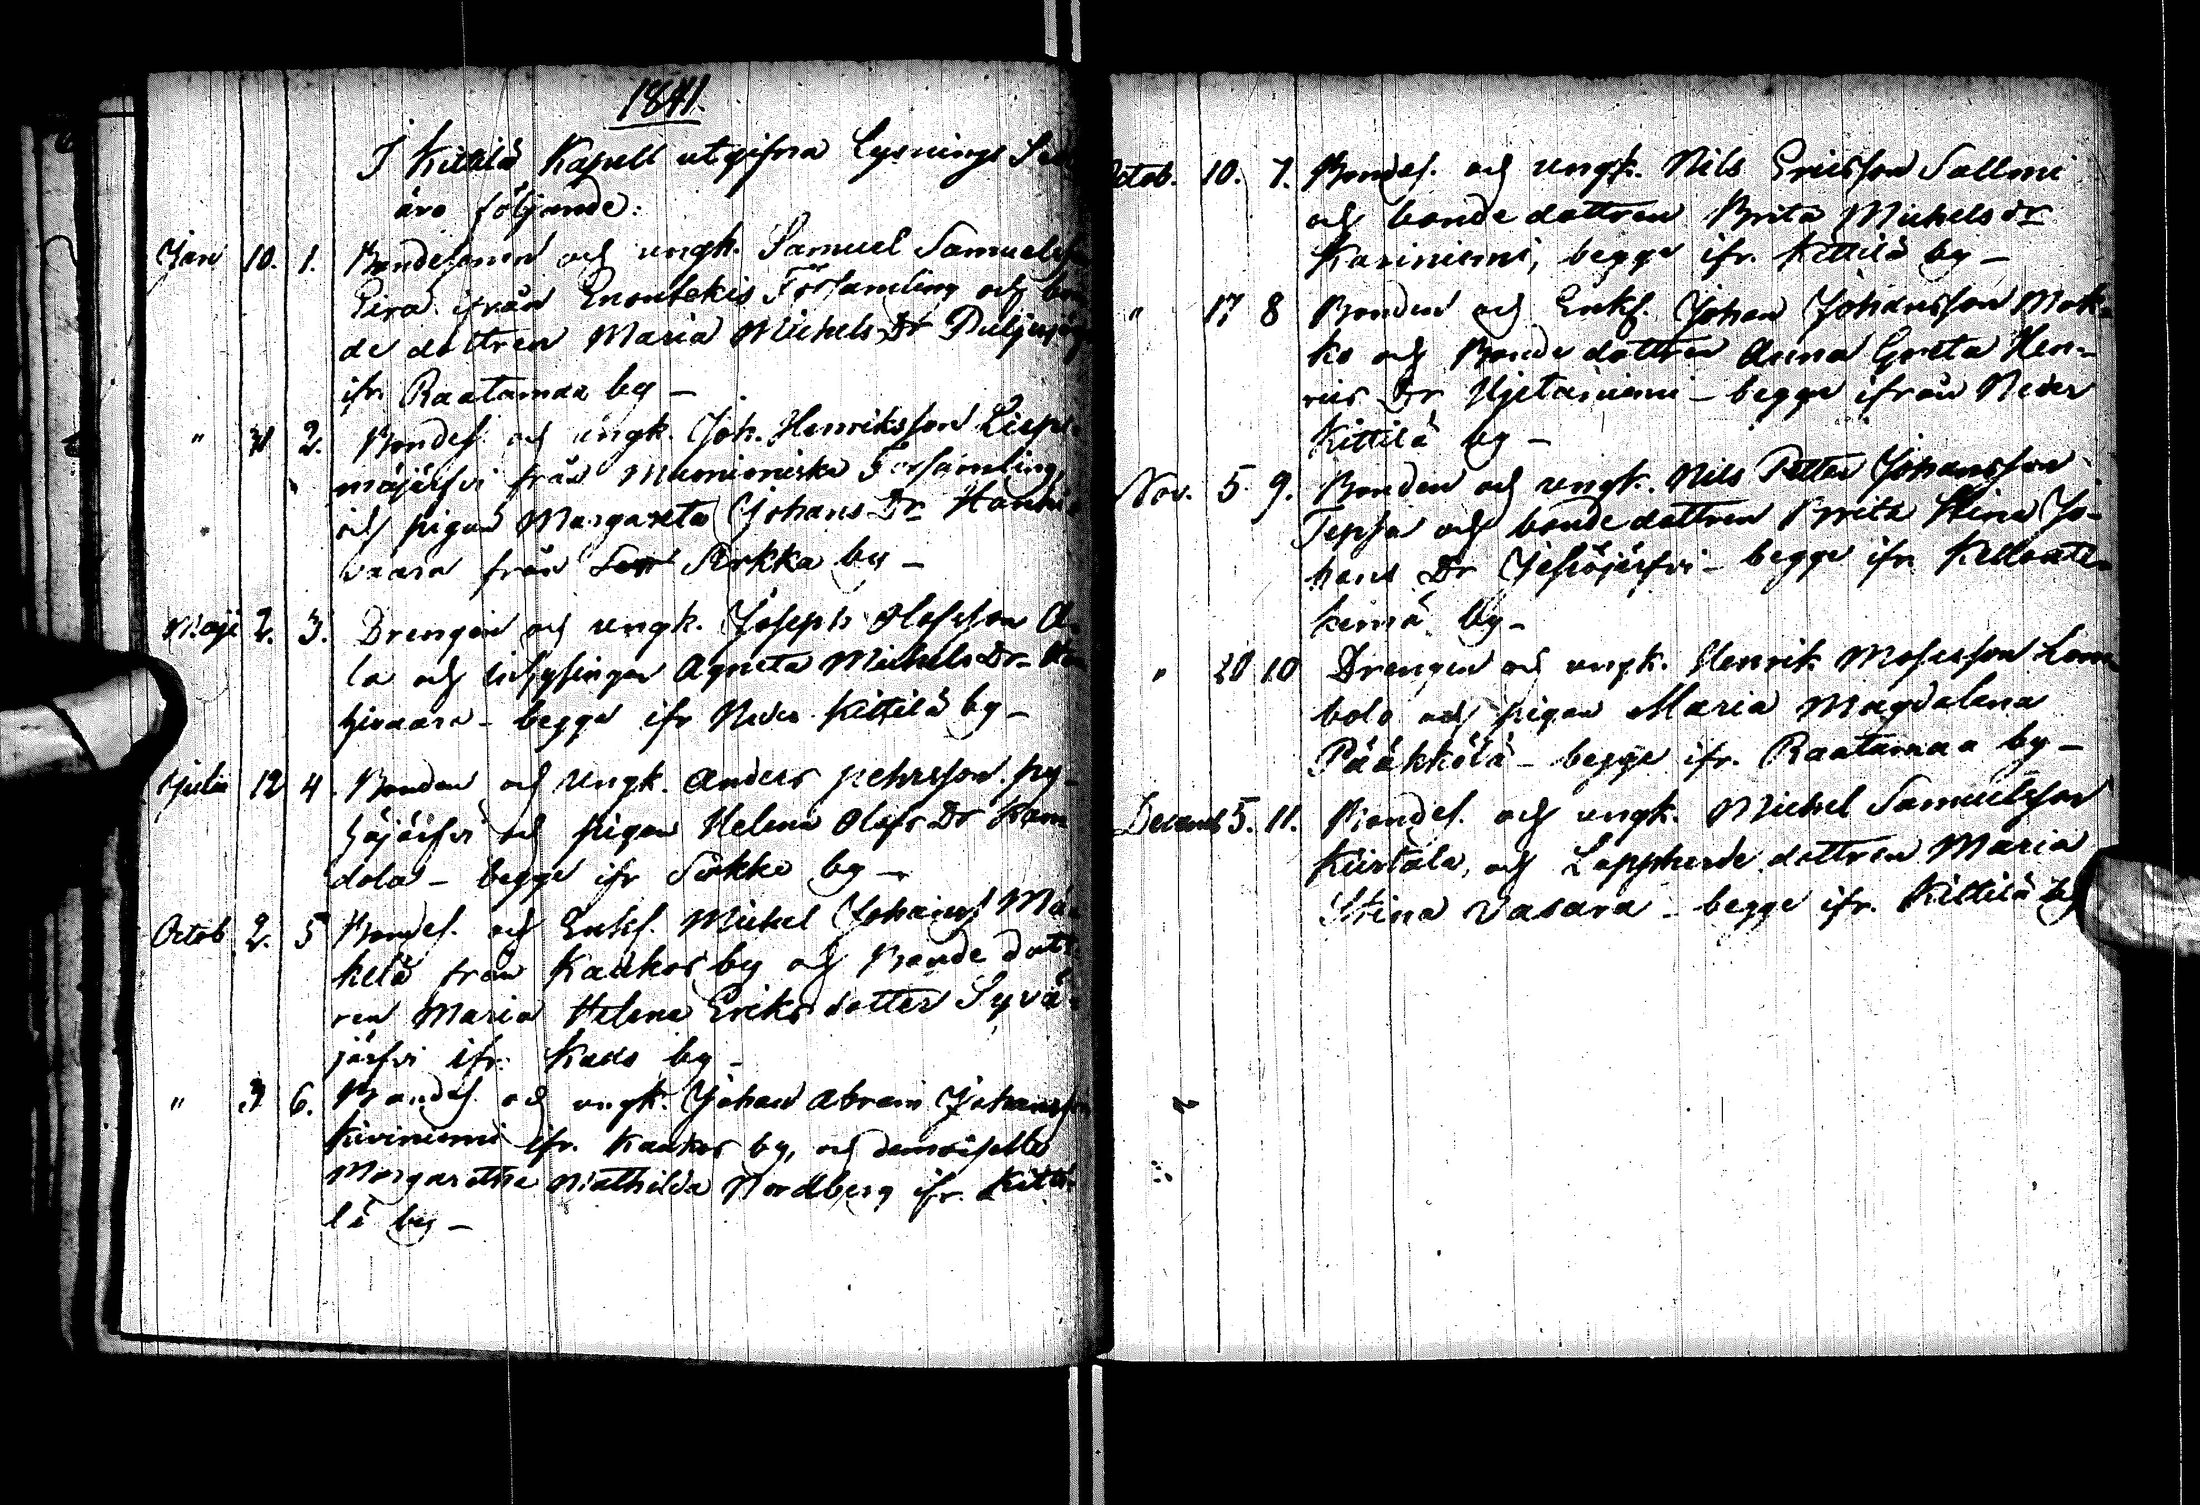 1841.
I Kittilä Kapell utgifna Lysnings
äro följande:
Jan 10. 1. Bondesonen och ungk. Samuel Samuelsson
Eira ifrån Enontekis Församling och bon
de dottren Maria Michels Dr Puljujärf
ifr. Raatamaa by –
" 31 2. Bondes. och ungk. Joh. Henriksson Liepi
mäjärfvi från Muonioniska Församling,
och pigan Margareta Johans Dr Hanhi
vaara från Sirkka by –
Maji 2. 3. Drengen och ungk. Joseph Olofsson A
la och Agneta Michels Dr
– begge ifr Neder Kittilä by –
Julii 12 4. Bonden och Ungk. Anders Pehrsson Py
häjärfvi och Pigan Helena Olofs Dr Kan
dola – begge ifr Sirkka by –
Octob 2. 5 Bondes. och Enkl. Michel Johanss Mä
kelä från Kaukos by och Bonde dott
ren Maria Helena Eriksdotter Syvä
järfvi ifr. by –
" 3 6. Bondes. och ungk. Johan Abram Johansson
Kiviniemi ifr. Kaukos by, och demoiselle
Margaretha Mathilda Nordberg ifr. Kitti
lä by –
Octob. 10. 7. Bondes. och ungk. Nils Ericsson Salmi
och bonde dottren Brita Michels dr
Kariniemi, begge ifr. Kittilä by –
" 17 8 Bonden och Enkl. Johan Johansson Mok-
ko och Bonde dottren Anna Greta Hen-
rics Dr Hjetaniemi – begge ifrån Neder
Kittilä by –
Nov. 5 9. Bonden och ungk. Nils Petter Johansson
Tepsa och bonde dottren Brita Stina Jo-
hans Dr Jesiöjärfvi – begge ifr. Kelloute-
kemä by –
" 20 10 Drengen och ungk. Henrik Mosesson Lom
bolo och pigan Maria Magdalena
Pääkkölä – begge ifr. Raatamaa by –
Decemb 5. 11. Bondes. och ungk. Michel Samuelsson
Kiistala, och Lappherde dottren Maria
Stina Vasara – begge ifr. Kittilä by